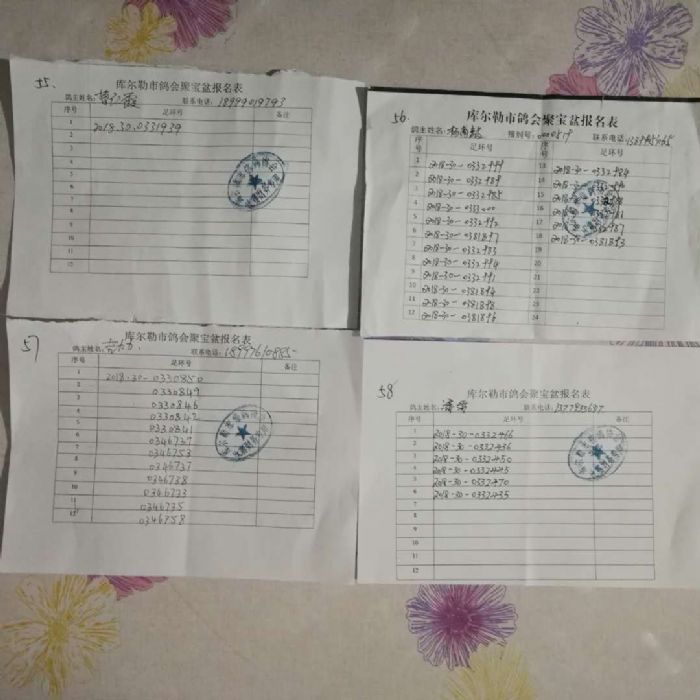 55.
库尔勒市鸽会聚宝盆报名表
鸽主姓名: 联系电话: 18999019793
序号 足环号 备注
1 2018.30.0331939
2
3
4
5
6
7
8
9
10
11
12
56.
库尔勒市鸽会聚宝盆报名表
鸽主姓名: 棚别号: 000519 联系电话:
序号 足环号 序号 足环号
1 2018-30-0332999 13 2018-30-0332984
2 2018-30-0332989 14
3 2018-30-0332985 15
4 2018-30-0333000 16
5 2018-30-0332992 17
6 2018-30-0381897 18 2018-30-0381893
7 2018-30-0332983 19
8 2018-30-0332994 20
9 2018-30-0332991 21
10 2018-30-0381894 22
11 2018-30-0381898 23
12 2018-30-0381896 24
57
库尔勒市鸽会聚宝盆报名表
鸽主姓名: 联系电话: 18997610885
序号 足环号 备注
1 2018.30-0330850
2 0330849
3 0330846
4 0330842
5 0330841
6 0346737
7 0346753
8 0346737
9 0346738
10 0346733
11 0346735
12 0346758
58
库尔勒市鸽会聚宝盆报名表
鸽主姓名: 联系电话:
序号 足环号 备注
1 2018-30-0332466
2 2018-30-0332436
3 2018-30-0332450
4 2018-30-0332445
5 2018-30-0332470
6 2018-30-0332435
7
8
9
10
11
12